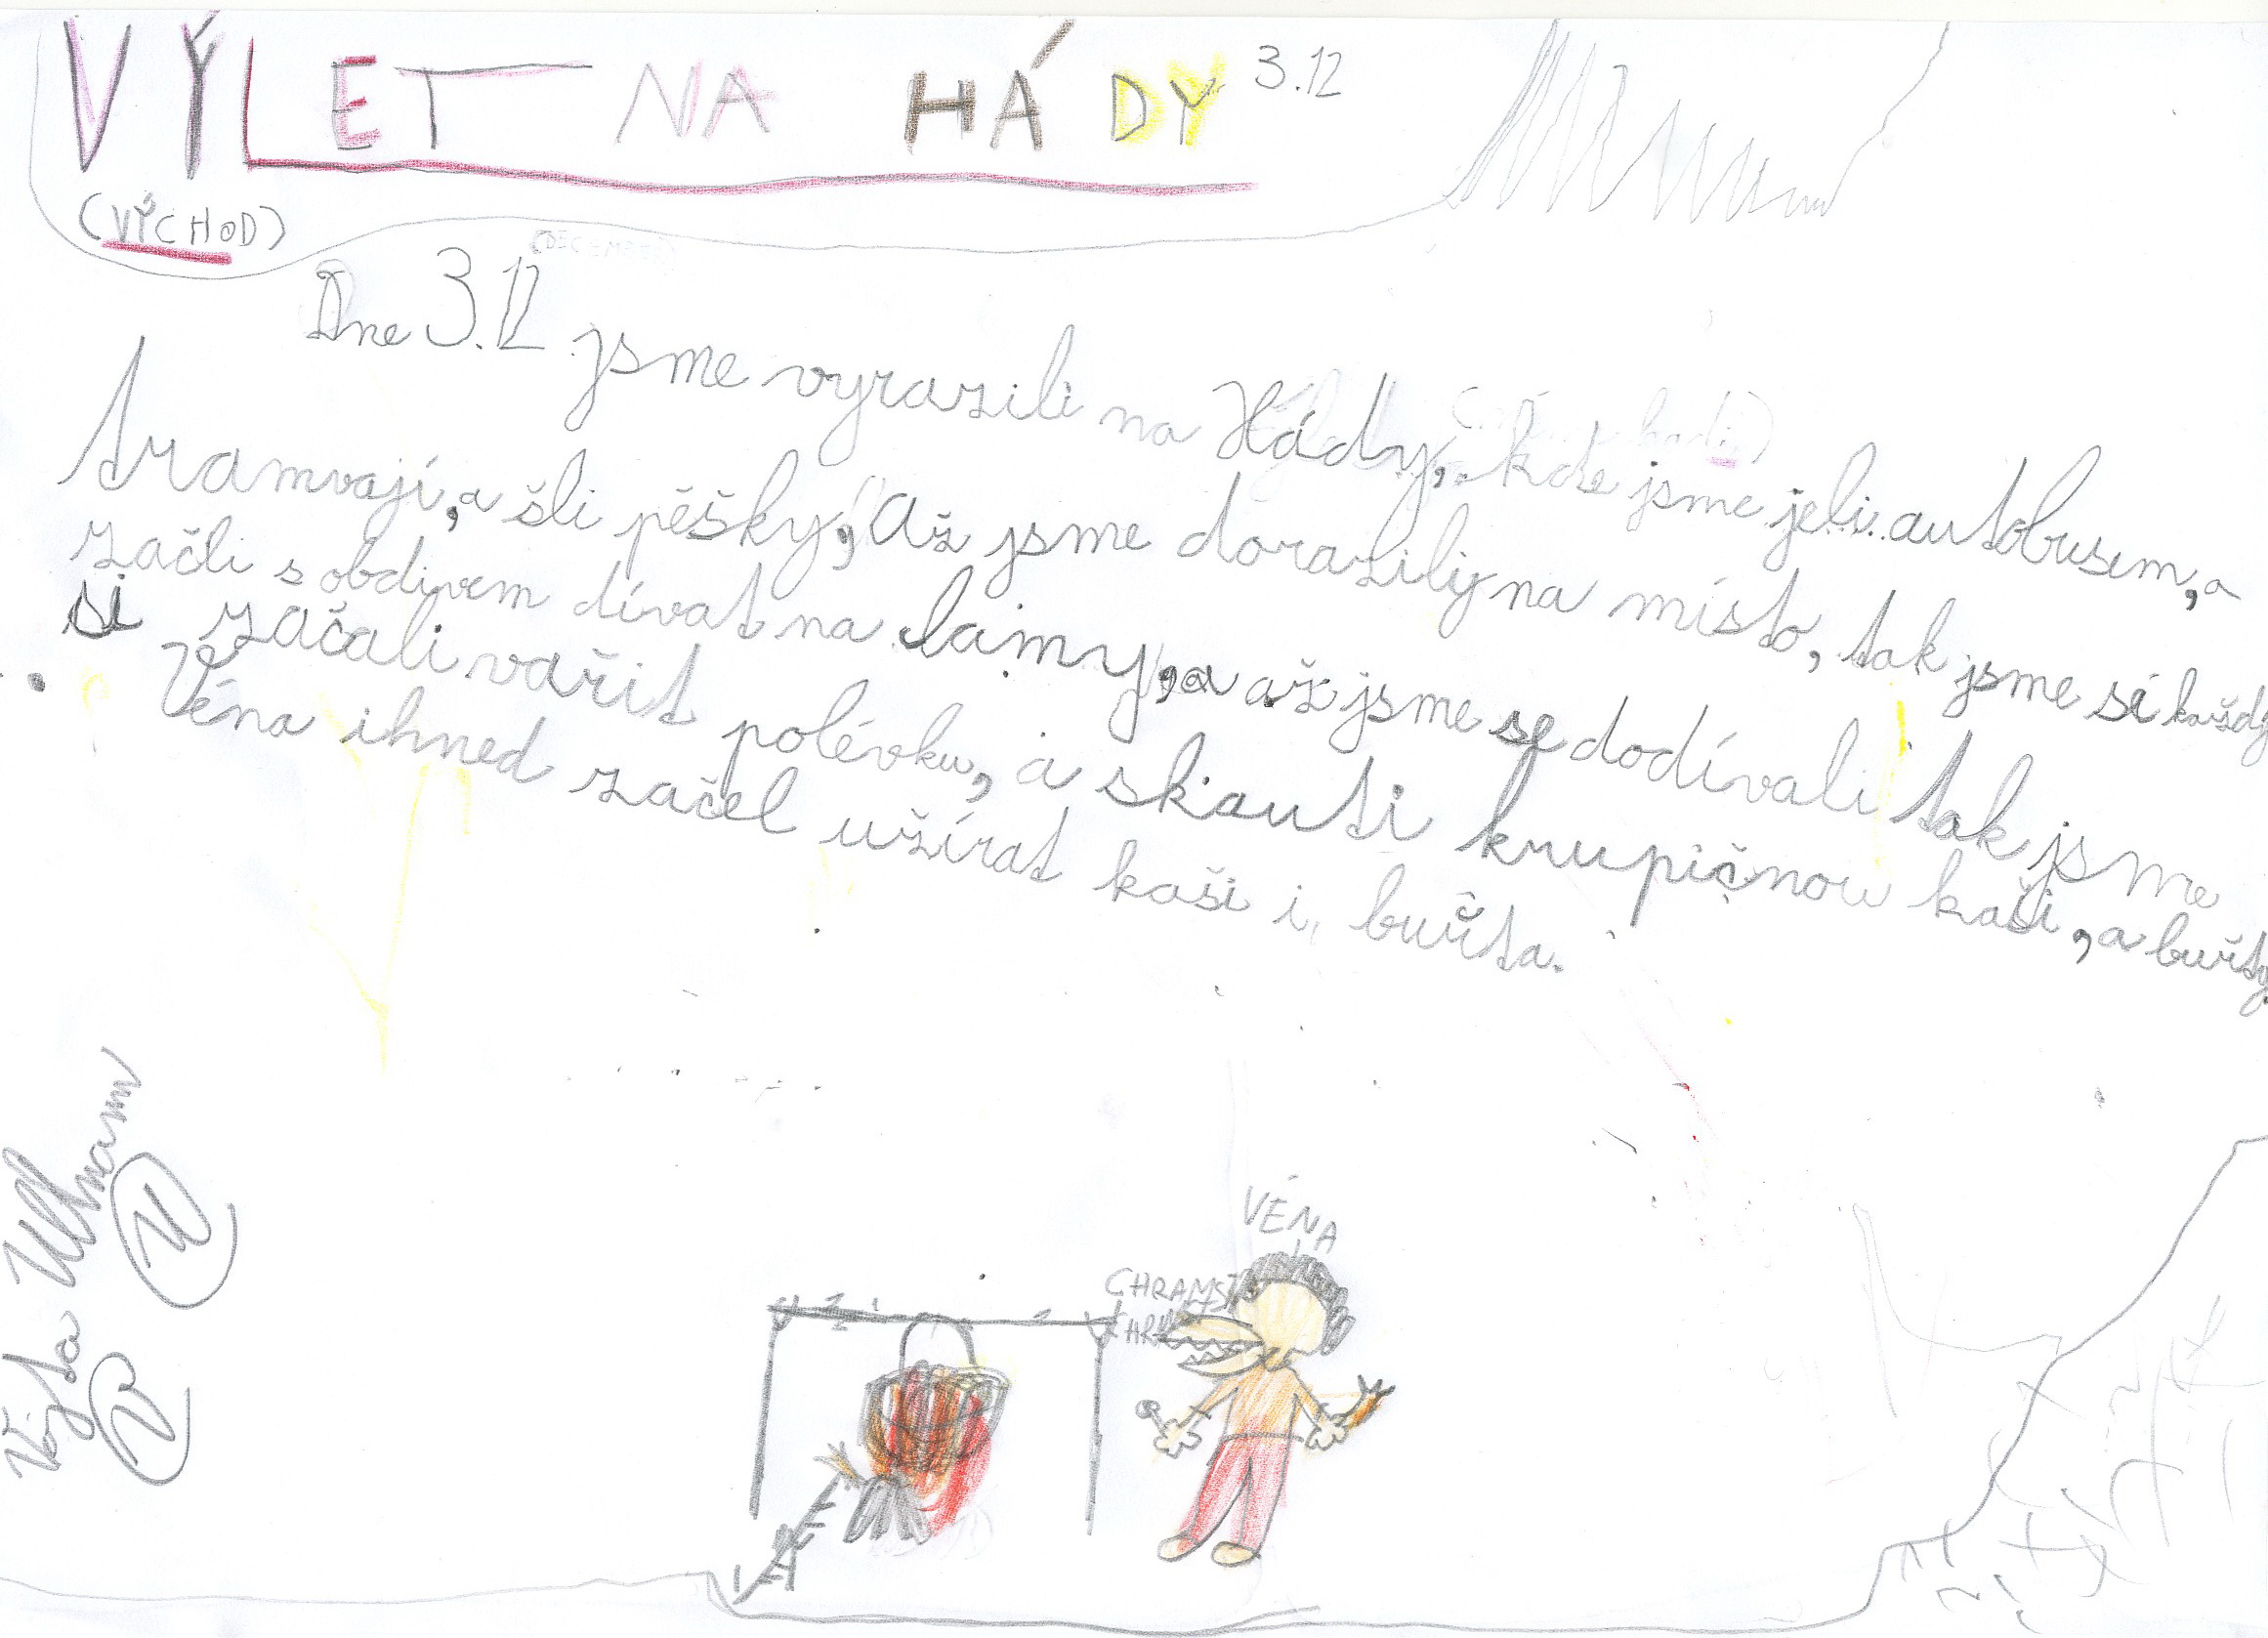 VÝLET NA HÁDY 3.12
(VÝCHOD)
Dne 3.12 jsme vyrazili na Hády, kde jsme jeli autobusem, a
tramvají, a šli pěšky, Až jsme dorazily na místo, tak jsme si každý
začli s obdivem dívat na lamy, a až jsme se dodívali tak jsme
si začali vařit polévku, a skauti krupičnou kaši, a buřty
Véna ihned začel užírat kaši i buřta.
Vojta Ullmann
VÉNA
CHRAMST